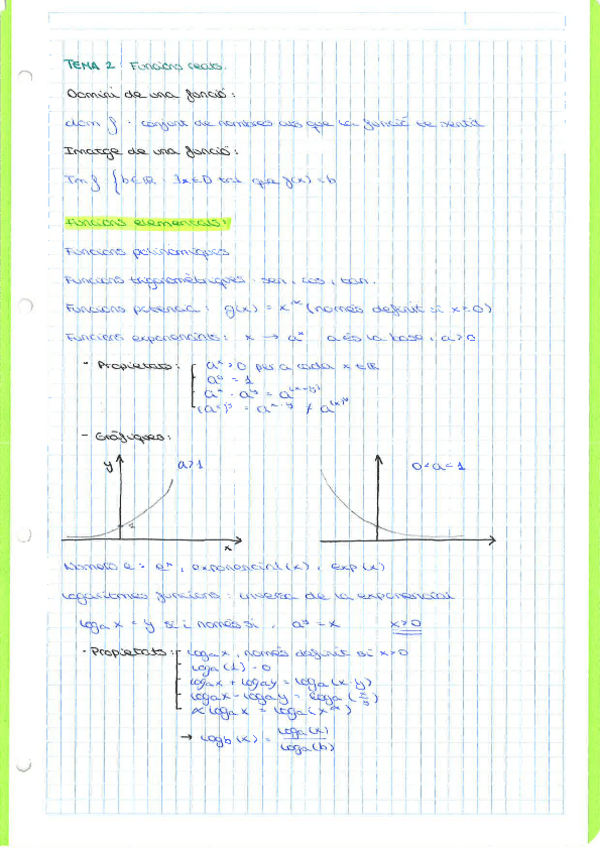 TEMA 2: Funcions reals.
Domini de una funció:
dom f · conjunt de nombres als que la funció té sentit
Imatge de una funció:
Im f {b∈ℝ · ∃x∈D tal que f(x) = b
Funcions elementals:
Funcions polinòmiques
Funcions trigonomètriques · sen, cos, tan.
Funcions potència: f(x) = x^α (només definit si x>0)
Funcions exponencials: x → a^x a és la base, a>0
- Propietats: a^x > 0 per a cada x ∈ ℝ
a^0 = 1
a^x · a^y = a^(x+y)
(a^x)^y = a^x·y ≠ a^(x)^y
- Gràfiques:
y a>1 0<a<1
x
Número e: e^x, exponencial(x), exp(x)
Logaritmes funcions: inversa de la exponencial
log_a x = y si i només si, a^y = x x>0
- Propietats: log_a x, només definit si x>0
log_a (1) = 0
log_a x + log_a y = log_a (x·y)
log_a x - log_a y = log_a (x/y)
α log_a x = log_a (x^α)
→ log_b (x) = log_a(x) / log_a(b)